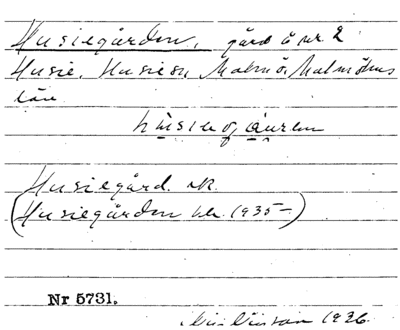 Husiegården, gård å nr 2
Husie, Husie sn, Malmö, Malmöhus
län
Husiegård. rk.
(Husiegården 1935-)
Nr 5731.
1936.